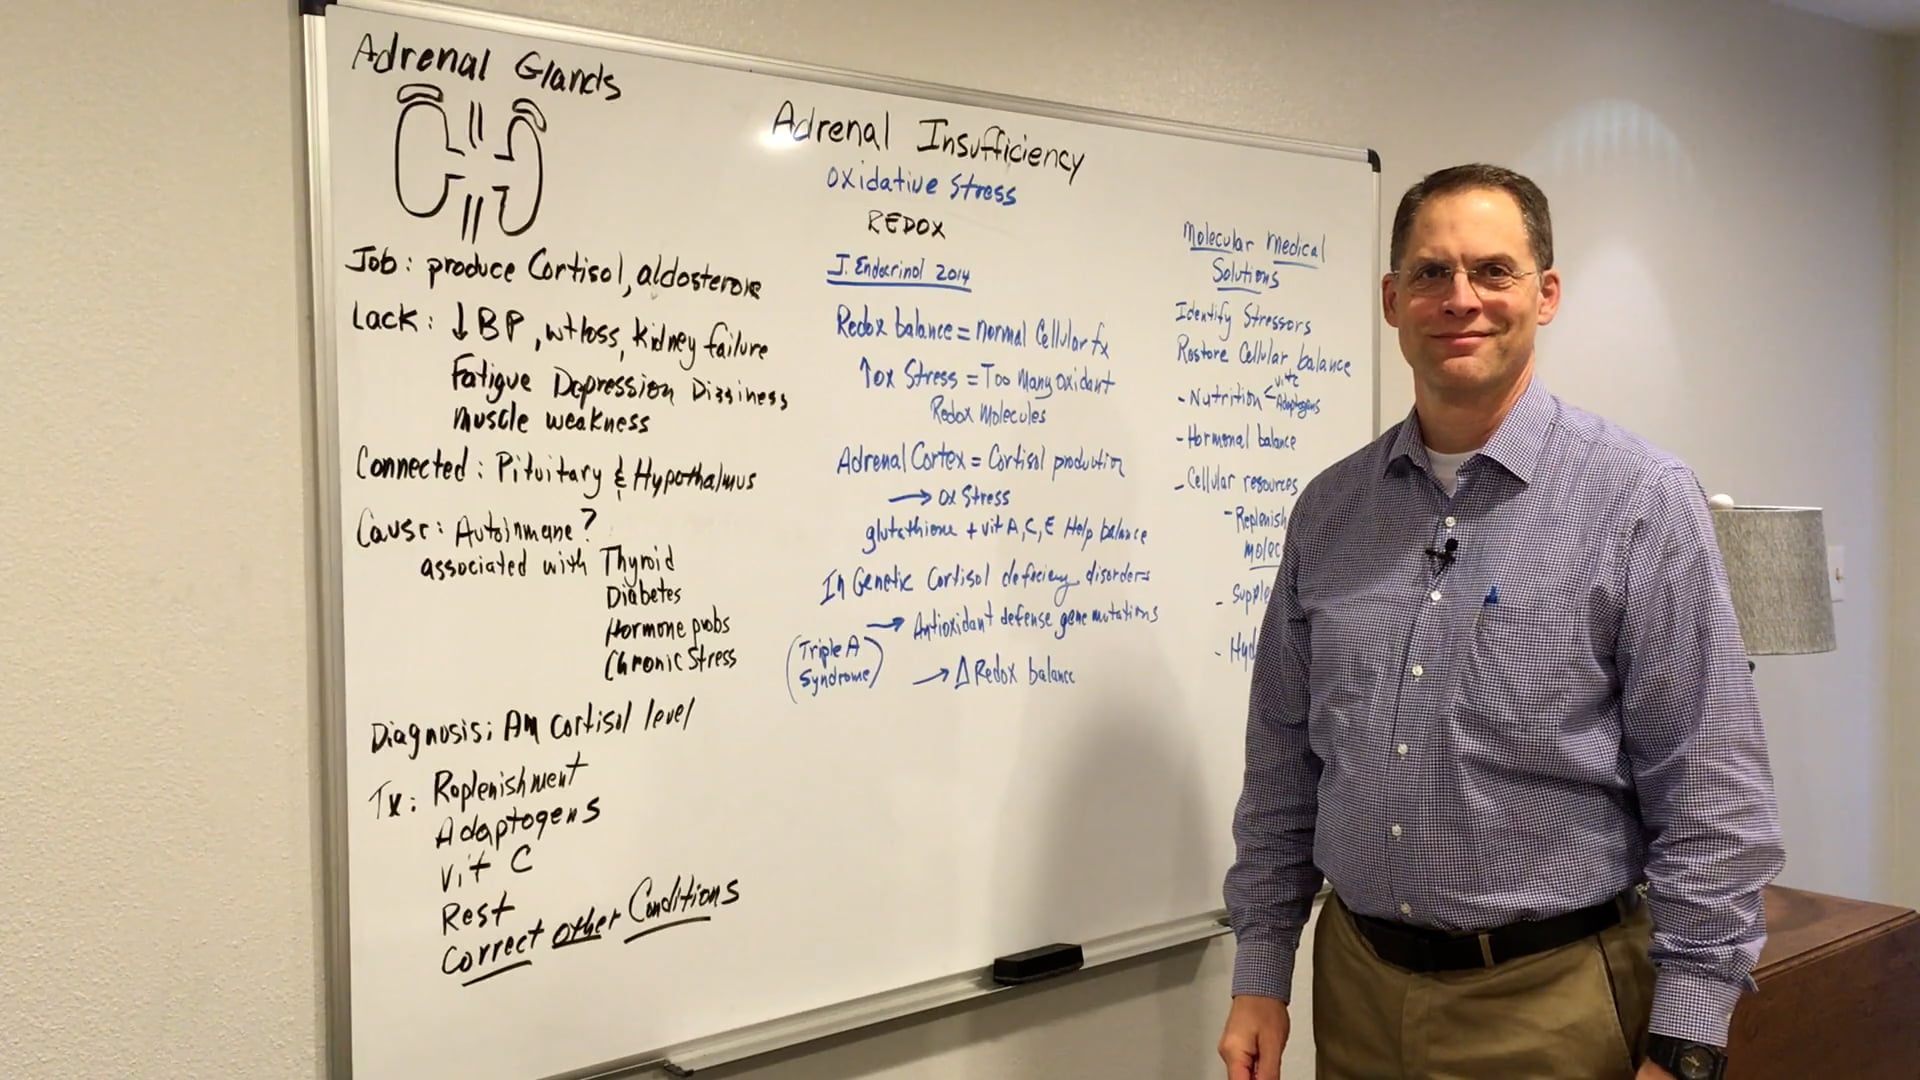 Adrenal Glands
Job: produce Cortisol, aldosterone
Lack: ↓BP, wt loss, kidney failure
Fatigue Depression Dizziness
Muscle weakness
Connected: Pituitary & Hypothalmus
Cause: Autoimmune?
associated with Thyroid
Diabetes
Hormone probs
Chronic Stress
Diagnosis: AM cortisol level
Tx: Replenishment
Adaptogens
Vit C
Rest
Correct other Conditions
Adrenal Insufficiency
Oxidative Stress
REDOX
J. Endocrinol 2014
Redox balance = normal Cellular fx
↑ox Stress = Too Many oxidant
Redox Molecules
Adrenal Cortex = Cortisol production
→ ox Stress
glutathione + vit A, C, E Help balance
In Genetic Cortisol deficiency disorders
→ Antioxidant defense gene mutations
(Triple A
Syndrome)
→ Δ Redox balance
Molecular Medical
Solutions
Identify Stressors
Restore Cellular balance
- Nutrition < vit C
Adaptogens
- Hormonal balance
- Cellular resources
- Replenish
molec
- Supple
- Hyd